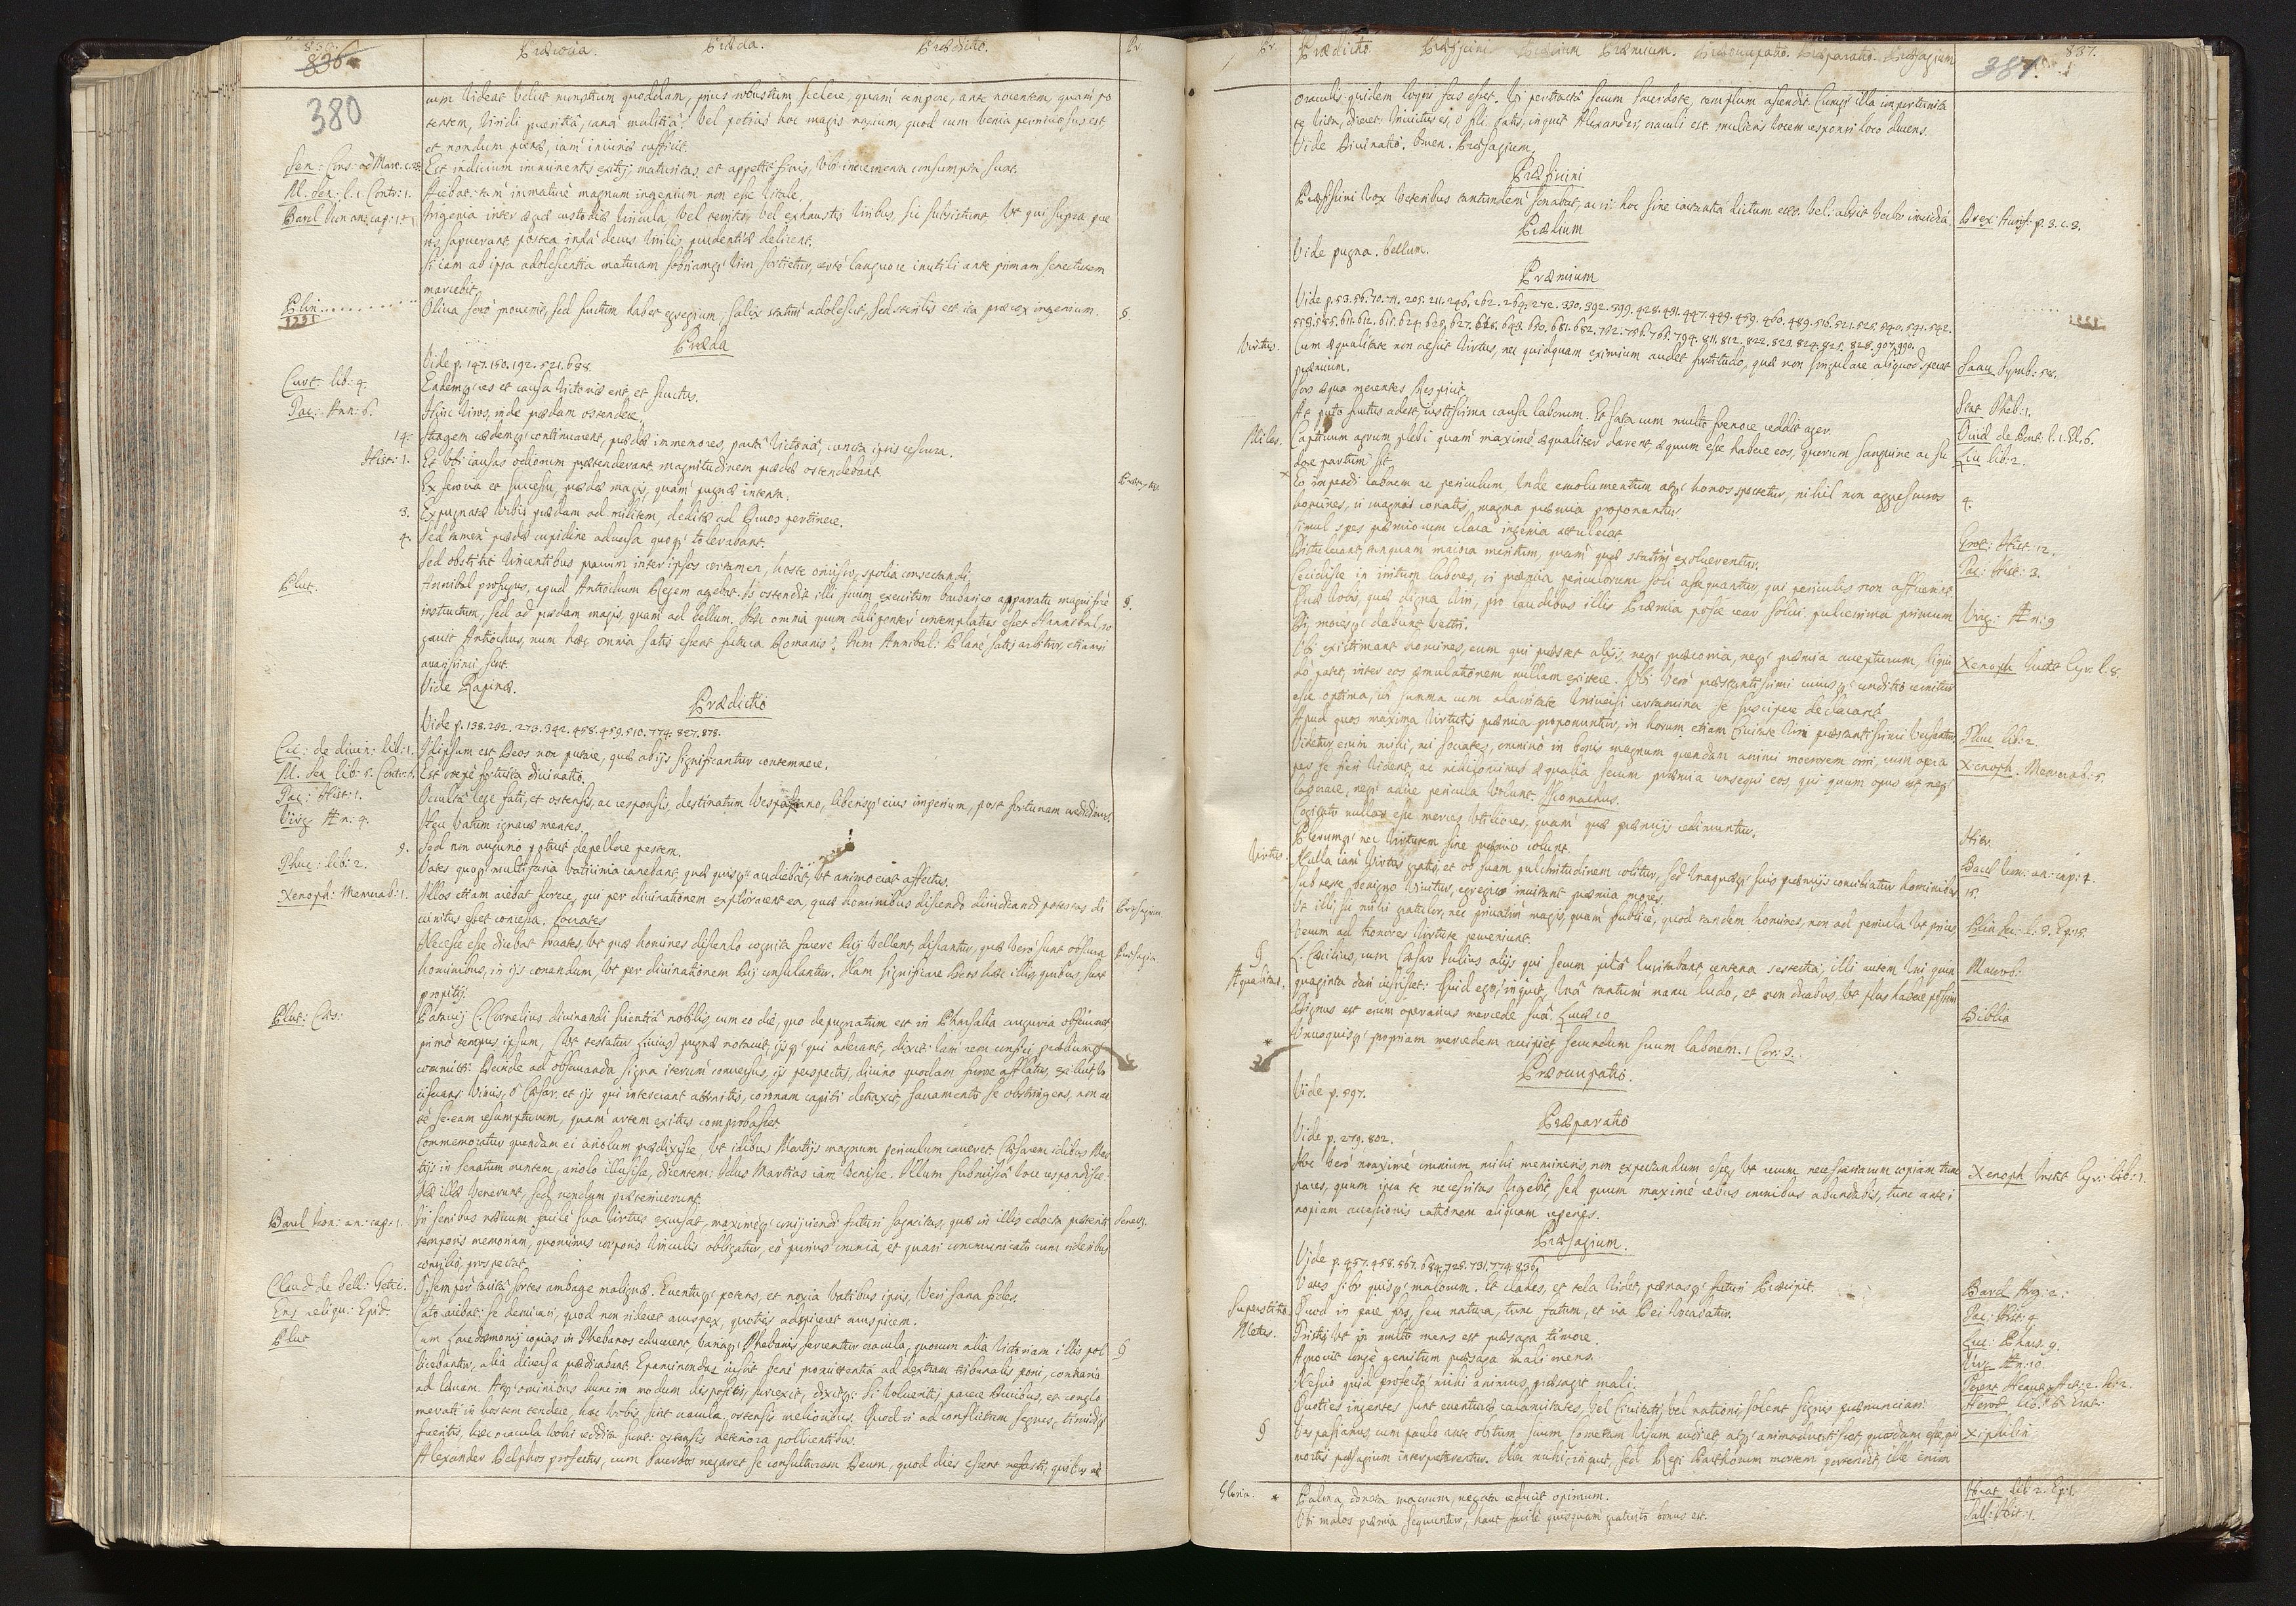 836.
380
Præcocia. Præda. Prædictio. Pr.
cum videat velut monstrum quoddam, prius robustum scelere, quam tempore, ante nocentem, quam po
tentem, viridi pueritia, cana malitia. Vel potius hoc magis noxium, quod cum venia perniciosus est
et nondum pœnæ, iam iniuriæ sufficit.
Sen: Cons: ad Marc. Est indicium imminentis exitij maturitas, et appetit finis, ubi incrementa consumpta sunt.
M. Sen: l. 1. Contr: 1. Aiebat: tam immature magnum ingenium non esse vitale.
Barcl Ingenia inter æque custodiæ vincula, vel teruntur vel exhaustis viribus, sic subsistunt, Ut qui supra pue
ros sapuerant postea infra decus virilis prudentiæ delirent.
Si iam ab ipsa adolescentia maturam sobriamq; vim sortietur, certe languore inutili ante primam senectutem
marcebit.
Plin. Oliva sero provenit, sed fructum habet egregium, salix statim adolescit, sed sterilis est ita præcox ingenium. §.
Præda
Vide p. 147. 150. 192. 521. 688.
Curt lib: 4. Eademq; res et causa victoriæ erit, et fructus.
Tac: Ann: 6. Hinc viros, inde prædam ostendere.
14. Stragem ædemq; continuarent, prædæ immemores, parta victoria, cuncta ipsis cessura.
Hist: 1. Et ubi causas odiorum prætenderant, magnitudinem prædæ ostendebant.
Ex ferocia et successu, prædæ magis, quam pugnæ intenta.
3. Expugnatæ urbis prædam ad militem, deditæ ad Duces pertinere.
4. Sed tamen prædæ cupidine adversa quoq; tolerabant.
Sed obstitit vincentibus pravum inter ipsos certamen, hoste omisso, spolia consectandi.
Plut. Annibal profugus, apud Antiochum Regem agebat. Is ostendit illi suum exercitum barbarico apparatu magnifice §.
instructum, sed ad prædam magis, quam ad bellum. Hæc omnia quum diligenter contemplatus esset Hannibal, ro
gavit Antiochus, num hæc omnia satis essent futura Romanis? Tum Annibal: Plane satis arbitror, etiamsi
avarissimi sint.
Vide Rapinæ.
Prædictio
Vide p. 138. 242. 273. 342. 458. 459. 510. 774. 827. 878.
Cic: de divin: lib: 1. Id ipsum est Deos non putare, quæ ab ijs significantur contemnere.
M. Sen lib: 5. Contr: Est sæpe fortuita divinatio.
Tac: Hist: 1. Occulta lege fati, et ostensis, ac responsis, destinatum Vespasiano, liberisq; eius imperium, post fortunam credidimus.
Virg Æn: 4. Heu vatum ignaræ mentes.
9. Sed non augurio potuit depellere pestem.
Thuc: lib: 2. Vates quoq; multifaria vaticinia canebant, quæ quisq; audiebat, ut animo erat affectus.
Xenoph: Memorab: 1. Illos etiam aiebat furere, qui per divinationem explorarent ea, quæ hominibus discendo dijudicandi potestas di Præsagium
vinitus esset concessa. Socrates
Necesse esse dicebat Socrates, Ut quæ homines discendo cognita facere Dij vellent, discantur, quæ vero sunt obscura Præsagia
hominibus, in ijs conandum, Ut per divinationem Dij consulantur. Nam significare Deos hæc illis, quibus sunt
propitij.
Plut: Cæs: Patavij C. Cornelius divinandi scientia nobilis, cum eo die, quo depugnatum est in Pharsalia auguria observaret
primo tempus ipsum, (Ut testatur Livius) pugnæ notavit, ijsq; qui aderant, dixit: iam rem confici, præliumq;
committi: Deinde ad observanda signa iterum conversus, ijs perspectis, divino quodam furore afflatus, exilijt, vo
ciferans: Vincis, o Cæsar. et ijs qui intererant attonitis, coronam capiti detraxit, sacramento se obstringens, non an
te se eam resumpturum, quam artem exitus comprobasset
Commemoratur quendam ei ariolum prædixisse, Ut idibus Martijs magnum periculum caveret Cæsarem idibus Mar
tijs in senatum euntem, ariolo illusisse, dicentem: Idus Martias iam venisse. Illum submissa voce respondisse
Idus illæ venerunt, sed nondum præterierunt.
Barcl Icon: an: cap: 1. In senibus rursum facile sua virtus excusat, maximeq; conijciendi futuri sagacitas, quæ in illis edocta præteriti Senect.
temporis memoriam, quominus corporis vinculis obligatur, eo purius omnia, et quasi communicato cum sideribus
consilio, prospectat.
Claud de bell: Getic: O semper tacita sortes ambage malignæ. Eventuq; patens, et noxia vatibus ipsis, Veri sana fides.
Cato aiebat: se demirari, quod non rideret aruspex, quoties adspiceret aruspicem.
Plut Cum Lacedæmonij copias in Thebanos educerent, variaq; Thebanis ferrentur oracula, quorum alia victoriam illis pol §
licebantur, alia diversa prædicabant. Epaminondas iussit bene promittentia ad dextram tribunalis poni, contraria
ad lævam. Atq; ominibus hunc in modum dispositis, surrexit, dixitq;: Si volueritis parere Ducibus, et conglo
merati in hostem tendere, hæc vobis sunt oracula, ostensis melioribus. Quod si ad conflictum segnes, timidiq;
fueritis, hæc oracula vobis reddita sunt: ostensis deteriora pollicentibus.
Alexander Delphos profectus, cum sacerdos negaret se consulturam Deum, quod dies essent nefasti, quibus ne
Pr Prædictio. Præfiscini Prælium Præmium. Præoccupatio. Præparatio. Præsagium 837.
381.
oraculis quidem loqui fas esset. Ipse pertracta secum sacerdote, templum ascendit. Cumq; illa importunita
te victa, diceret: Invictus es, o fili. satis, inquit Alexander, oraculi est. mulieris vocem responsi loco ducens.
Vide Divinatio. Omen. Præsagium.
Præfiscini
Præfiscini vox veteribus tantundem sonabat, ac si: hoc sine iactantia dictum esto. Vel: absit verbo invidia. Drex: Aurif: p. 3. c. 3.
Prælium
Vide pugna. bellum.
Præmium
Cum æqualitate non crescit virtus, nec quidquam eximium audet fortitudo, quæ non singulare aliquod sperat Saav Symb: 58.
Virtus.
præmium.
Sors æqua merentes Respicit. Stat Theb: 1.
At puto fructus adest, iustissima causa laborum. Et sata cum multo fœnore reddit ager. Ovid de Pont: l. 1. El. 6.
Miles. Captivum agrum plebi quam maxime æqualiter darent, æquum esse habere eos, quorum sanguine ac su Liv lib: 2.
dore partum sit.
Eo impendi laborem ac periculum, Unde emolumentum atq; honos spectetur, nihil non aggressuros 4.
homines, si magnis conatis, magna præmia proponantur
Simul spes præmiorum clara ingenia attulerat. Grot: Hist: 12.
Distulerant, tanquam maiora meritum, quam quæ statim exolverentur. Tac: Hist: 3.
Cecidisse in irritum labores, si præmia periculorum soli assequantur, qui periculis non affuerint
Quæ vobis, quæ digna viri, pro laudibus istis Præmia posse rear solvi. pulcerrima primum Virg: Æn: 9
Di, moresq; dabunt vestri.
Ubi existimant homines, eum qui præstet alijs, neq; præconia, neq; præmia accepturum, liqui Xenoph Instit Cyr: l. 8.
do patet, inter eos æmulationem nullam existere. Ubi vero præstantissimi cuiusq; conditio cernitur
esse optima, ibi summa cum alacritate universi certamina se suscipere declarant.
Apud quos maxima virtutis præmia proponuntur, in horum etiam Civitate viri præstantissimi versantur. Thuc lib: 2.
Videtur enim mihi, mi Socrates, omnino in bonis magnum quendam animi mœrorem oriri, cum opera Xenoph. Memorab: 5.
per se fieri vident, ac nihilominus æqualia secum præmia consequi eos, qui quum opus sit neq;
laborare, neq; adire pericula volunt. Isomachus.
Cogitato nullas esse merces viliores, quam quæ præmijs redimuntur.
Plerumq; nec virtutem sine præmio colunt.
Virtus. Nulla iam virtus gratis, et ob suam pulchritudinem colitur, sed unaquæq; suis præmijs conciliatur hominibus Barcl Icon: an: cap: 4.
Sub teste benigno Vivitur, egregios invitant præmia mores. 15.
Ut illis sic mihi gratulor, nec privatim magis, quam publice, quod tandem homines, non ad pericula ut prius Plin
verum ad honores virtute perveniunt.
§ L. Cæcilius, cum Cæsar Iulius alijs qui secum pila lusitabant, centena sestertia, illi autem uni quin Macrob:
Æqualitas. quaginta dari iussisset: Quid ego, inquit, Una tantum manu ludo, et non duabus, ut plus habere possim
Dignus est enim operarius mercede sua. Lucæ 10 Biblia
Unusquisq; propriam mercedem accipiet secundum suum laborem. 1 Cor: 3.
Præoccupatio.
Vide p. 597.
Præparatio
Vide p. 279. 802.
Hoc vero maxime omnium mihi memineris, non expectandum esse, Ut rerum necessariarum copiam tunc Xenoph Instit Cyr: lib: 1.
pares, quum ipsa te necessitas urgebit, sed quum maxime rebus omnibus abundabis, tunc ante i
nopiam accessionis rationem aliquam reperies.
Præsagium.
Vide p. 457. 458. 567. 684. 725. 731. 774. 836.
Vates sibi quisq; malorum. Et clades, et tela videt, pænasq; futuri Præcipit. Barcl Arg: 2:
Superstitio Quod in pace fors, seu natura, tunc fatum, et ira Dei vocabatur. Tac: Hist: 4
Metus. Tristis, ut in multo mens est præsaga timore. Luc: Phars: 9.
Agnovit longe gemitum præsaga mali mens. Virg Æn: 10
Nescio quid profecto mihi animus præsagit mali. Terent Heaut: Act: 2. Sc: 2.
Quoties ingentes sunt eventuræ calamitates, vel Civitati, vel nationi, solent signis prænunciari. Herod lib: 6 Erat:
§ Vespasianus cum paulo ante obitum suum Cometam visum audiret atq; animadvertisset, quosdam esse qui Xiphilin
mortis præsagium interpretarentur. Non mihi, inquit, sed Regi Parthorum mortem portendit, ille enim
Gloria. * Palma donata macrum, negata reducit opimum. Horat lib: 2. Ep: 1.
Ubi malos præmia sequuntur, haut facile quisquam gratuito bonus est. Sall: Hist: 1.